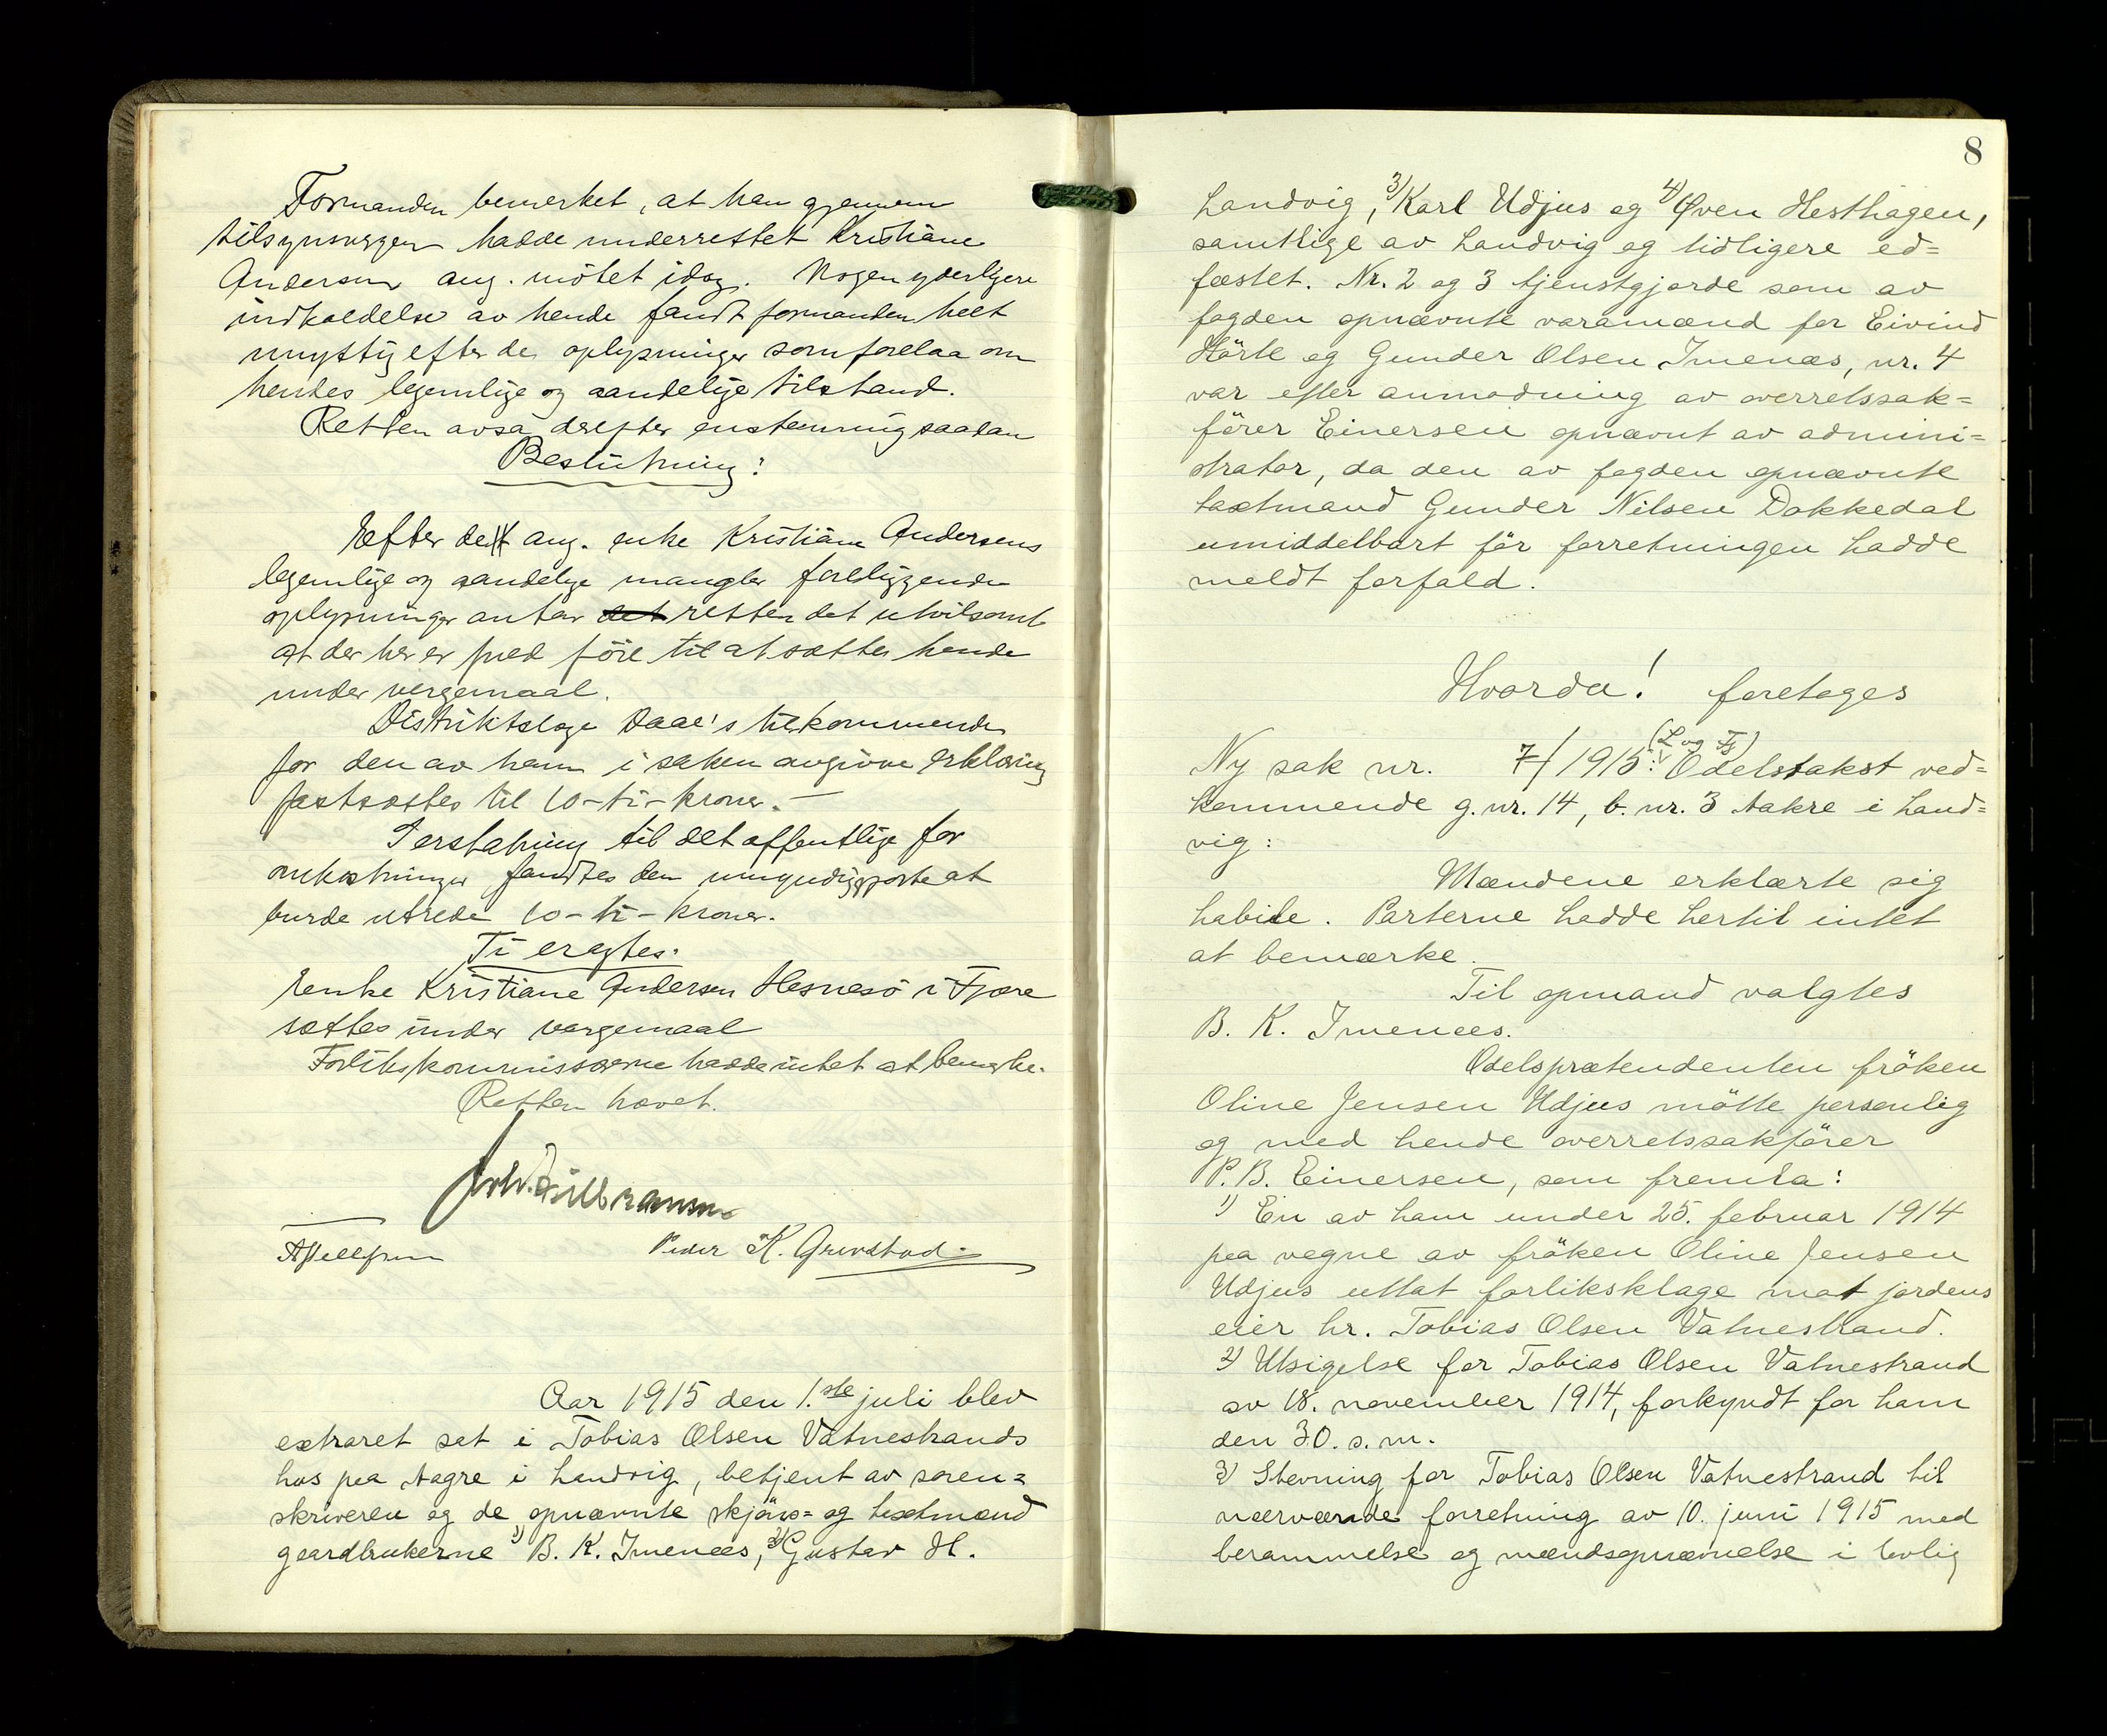 Formanden bemerket, at han gjennem
tilsynsvergen hadde underrettet Kristiane
Andersen ang. mötet idag. Nogen yderligere
indkaldelse av hende fandt formanden helt
unyttig efter de oplysninger som forelaa om
hendes legemlige og aandelige tilstand.
Retten avsa derefter enstemmig saadan
Beslutning:
Efter de ang. enke Kristiane Andersens
legemlige og aandelige mangler foreliggende
oplysninger antar retten det utvilsomt
at der her er fuld föie til at sætte hende
under vergemaal.
Distriktslæge Daae's tilkommende
for den av ham i saken avgivne erklæring
fastsættes til 10-ti-kroner.-
I erstatning til det offentlige for
omkostninger fandtes den umyndiggjorte at
burde utrede 10-ti-kroner.
Ti eragtes:
Enke Kristiane Andersen Hesnesö i Fjære
sættes under vergemaal
Forlikskommissærerne hadde intet at bemerke.
Retten hævet.
Peder K. Grevstad
Aar 1915 den 1.ste juli blev
extraret sat i Tobias Olsen Vatnestrands
hus paa Aagre i Landvig, betjent av soren=
skriveren og de opnævnte skjöns= og taxtmænd
gaardbrukerne 1) B. K. Imenæs, 2) Gustav H.
8
Landvig, 3) Karl Udjus og 4) Öven Hesthagen,
samtlige av Landvig og tidligere ed=
fæstet. Nr. 2 og 3 tjenstgjorde som av
fogden opnævnte varamænd for Eivind
Hörte og Gunder Olsen Imenæs, nr. 4
var efter anmodning av overretssak=
förer Einersen opnævnt av admini=
strator, da den av fogden opnævnte
taxtmand Gunder Nilsen Dokkedal
umiddelbart för forretningen hadde
meldt forfald.
Hvorda! foretages
(L og Fj)
Ny sak nr. 7/1915: Odelstakst ved=
kommende g.nr. 14, b.nr. 3 Aakre i Land=
vig:
Mændene erklærte sig
habile. Parterne hadde hertil intet
at bemærke.
Til opmand valgtes
B. K. Imenæs.
Odelsprætendenten fröken
Oline Jensen Udjus mötte personlig
og med hende overretssakförer
P. B. Einersen, som fremla:
1) En av ham under 25. februar 1914
paa vegne av fröken Oline Jensen
Udjus uttat forliksklage mot jordens
eier hr. Tobias Olsen Vatnestrand.
2) Utsigelse for Tobias Olsen Vatnestrand
av 18. november 1914, forkyndt for ham
den 30. s.m.
3) Stevning for Tobias Olsen Vatnestrand til
nærværende forretning av 10. juni 1915 med
berammelse og mændsopnævnelse i lovlig